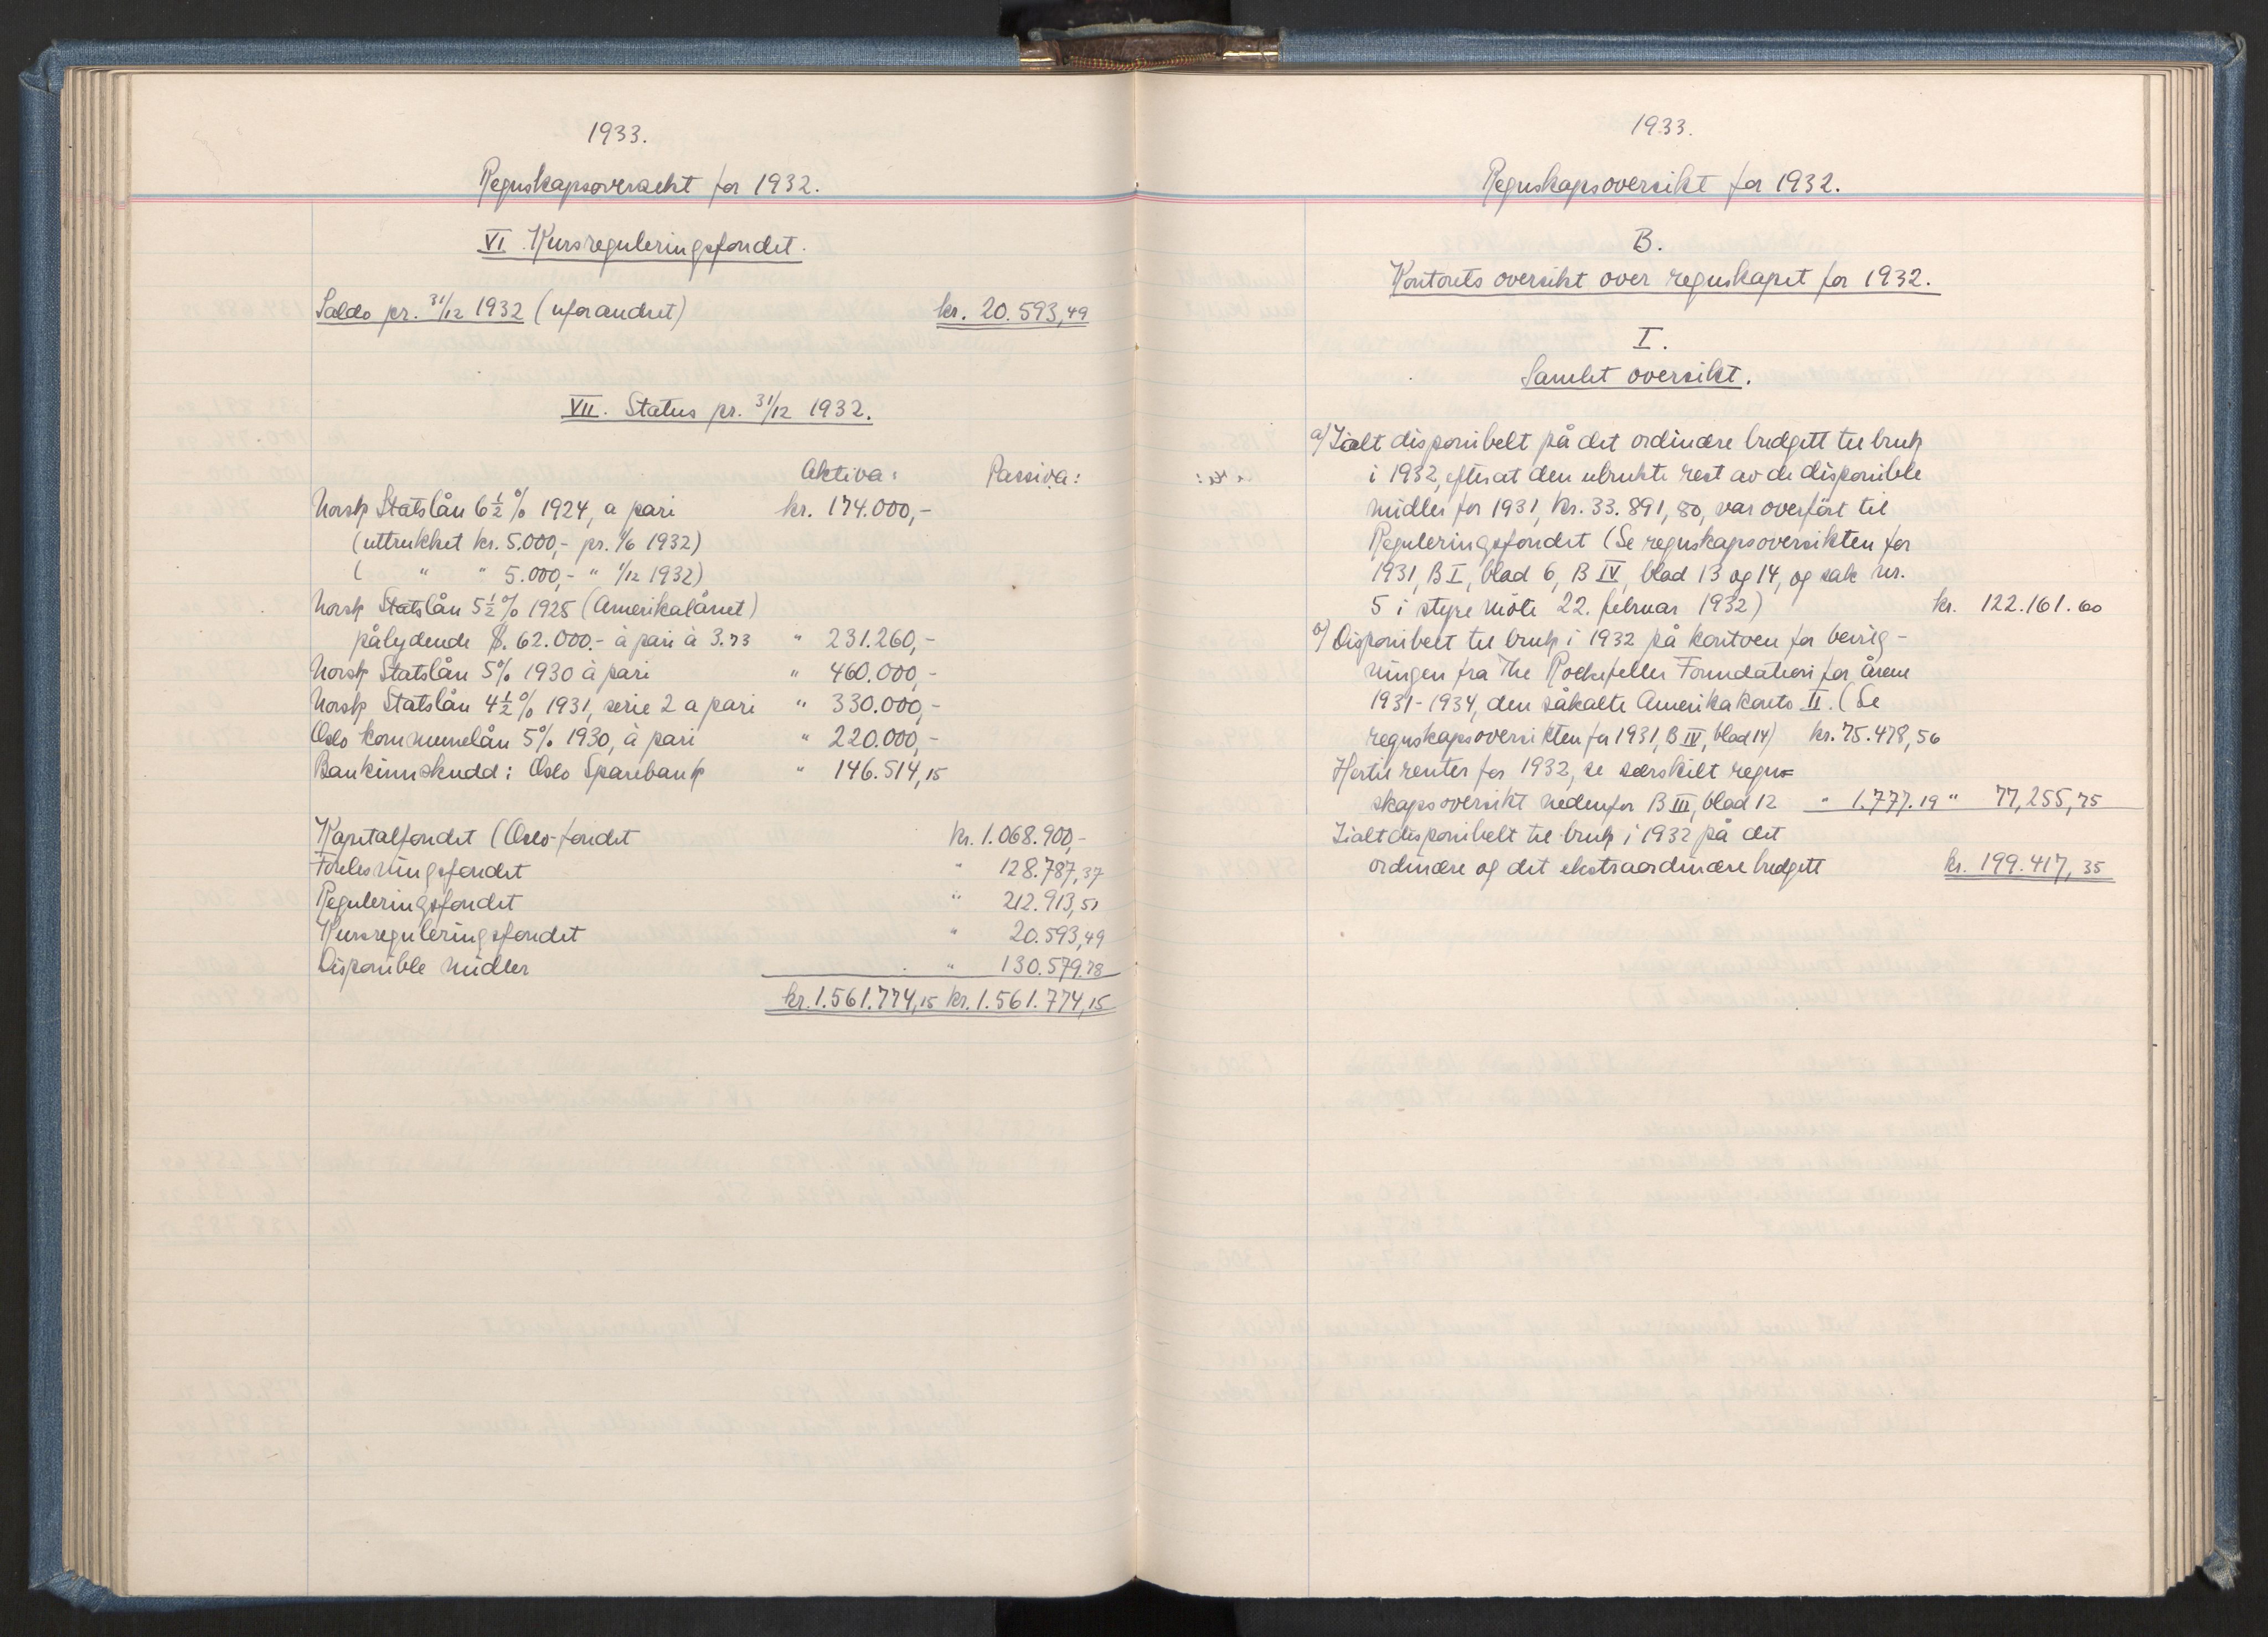 1933.
Regnskapsoversikt for 1932.
VI. Kursreguleringsfondet.
Saldo pr. 31/12 1932 (uforandret) kr. 20.593,49
VII. Status pr. 31/12 1932.
Aktiva: Passiva:
Norsk Statslån 6 1/2 % 1924, a pari kr. 174.000,-
(uttrukket kr. 5.000,- pr. 1/6 1932)
( " " 5.000,- " 1/12 1932)
Norsk Statslån 5 1/2 % 1925 (Amerikalånet)
pålydende $. 62.000.- à pari à 3.73 " 231.260,-
Norsk Statslån 5% 1930 à pari " 460.000,-
Norsk Statslån 4 1/2 % 1931, serie 2 a pari " 330.000,-
Oslo kommunelån 5% 1930, à pari " 220.000,-
Bankinnskudd: Oslo Sparebank " 146.514,15
Kapitalfondet (Oslo-fondet kr. 1.068.900,-
Forelesningsfondet " 128.787,37
Reguleringsfondet " 212.913,51
Kursreguleringsfondet " 20.593,49
Disponible midler " 130.579.78
kr. 1.561.774,15 kr. 1.561.774,15
1933.
Regnskapsoversikt for 1932.
B.
Kontorets oversikt over regnskapet for 1932.
I.
Samlet oversikt.
a) Ialt disponibelt på det ordinære budgett til bruk
i 1932, efterat den ubrukte rest av de disponible
midler for 1931, kr. 33.891,80, var overført til
Reguleringsfondet (Se regnskapsoversikten for
1931, B I, blad 6, B IV, blad 13 og 14, og sak nr.
5 i styremöte 22. februar 1932) kr. 122.161.60
b) Disponibelt til bruk i 1932 på kontoen for bevilg-
ningen fra The Rockefeller Foundation for årene
1931-1934, den såkalte Amerikakonto II. (Se
regnskapsoversikten for 1931, B IV, blad 14) kr. 75.478,56
Hertil renter for 1932, se særskilt regn=
skapsoversikt nedenfor B III, blad 12 " 1.777.19 " 77,255,75
Ialt disponibelt til bruk i 1932 på det
ordinære og det ekstraordinære budgett kr. 199.417,35